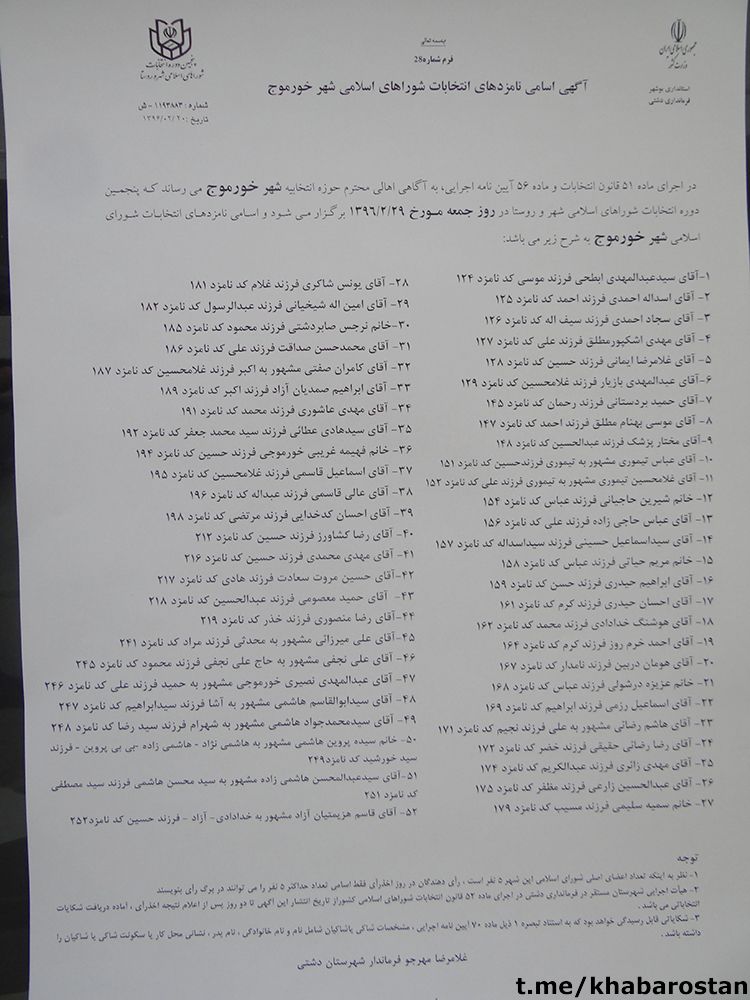 بسمه تعالی
فرم شماره28
آگهی اسامی نامزدهای انتخابات شوراهای اسلامی شهر خورموج
جمهوری اسلامی ایران
وزارت کشور
استانداری بوشهر
فرمانداری دشتی
پنجمین دوره انتخابات
شوراهای اسلامی شهر و روستا
شماره : ۱۱۹۳۸۸۳ - ش
تاریخ : ۱۳۹۶/۰۲/۲۰
در اجرای ماده ۵۱ قانون انتخابات و ماده ۵۶ آیین نامه اجرایی، به آگاهی اهالی محترم حوزه انتخابیه شهر خورموج می رساند که پنجمین
دوره انتخابات شوراهای اسلامی شهر و روستا در روز جمعه مورخ ۱۳۹۶/۲/۲۹ برگزار می شود و اسامی نامزدهای انتخابات شورای
اسلامی شهر خورموج به شرح زیر می باشد:
۱-آقای سیدعبدالمهدی ابطحی فرزند موسی کد نامزد ۱۲۴
۲- آقای اسداله احمدی فرزند احمد کد نامزد ۱۲۵
۳- آقای سجاد احمدی فرزند سیف اله کد نامزد ۱۲۶
۴- آقای مهدی اشکپورمطلق فرزند علی کد نامزد ۱۲۷
۵- آقای غلامرضا ایمانی فرزند حسین کد نامزد ۱۲۸
۶-آقای عبدالمهدی بازیار فرزند غلامحسین کد نامزد ۱۲۹
۷- آقای حمید بردستانی فرزند رحمان کد نامزد ۱۴۵
۸- آقای موسی بهنام مطلق فرزند احمد کد نامزد ۱۴۷
۹-آقای مختار پزشک فرزند عبدالحسین کد نامزد ۱۴۸
۱۰- آقای عباس تیموری مشهور به تیموری فرزندحسین کد نامزد ۱۵۱
۱۱- آقای غلامحسین تیموری مشهور به تیموری فرزند علی کد نامزد ۱۵۲
۱۲- خانم شیرین حاجیانی فرزند عباس کد نامزد ۱۵۴
۱۳- آقای عباس حاجی زاده فرزند علی کد نامزد ۱۵۶
۱۴- آقای سیداسماعیل حسینی فرزند سیداسداله کد نامزد ۱۵۷
۱۵- خانم مریم حیاتی فرزند عباس کد نامزد ۱۵۸
۱۶- آقای ابراهیم حیدری فرزند حسن کد نامزد ۱۵۹
۱۷- آقای احسان حیدری فرزند کرم کد نامزد ۱۶۱
۱۸- آقای هوشنگ خدادادی فرزند محمد کد نامزد ۱۶۲
۱۹- آقای احمد خرم روز فرزند کرم کد نامزد ۱۶۴
۲۰- آقای هومان دربین فرزند نامدار کد نامزد ۱۶۷
۲۱- خانم عزیزه درشولی فرزند عباس کد نامزد ۱۶۸
۲۲- آقای اسماعیل رزمی فرزند ابراهیم کد نامزد ۱۶۹
۲۳- آقای هاشم رضائی مشهور به علی فرزند نجیم کد نامزد ۱۷۱
۲۴- آقای رضا رضائی حقیقی فرزند خضر کد نامزد ۱۷۲
۲۵- آقای مهدی زائری فرزند عبدالکریم کد نامزد ۱۷۴
۲۶- آقای عبدالحسین زارعی فرزند مظفر کد نامزد ۱۷۵
۲۷- خانم سمیه سلیمی فرزند مسیب کد نامزد ۱۷۹
۲۸- آقای یونس شاکری فرزند غلام کد نامزد ۱۸۱
۲۹- آقای امین اله شیخیانی فرزند عبدالرسول کد نامزد ۱۸۲
۳۰-خانم نرجس صابردشتی فرزند محمود کد نامزد ۱۸۵
۳۱- آقای محمدحسن صداقت فرزند علی کد نامزد ۱۸۶
۳۲- آقای کامران صفتی مشهور به اکبر فرزند غلامحسین کد نامزد ۱۸۷
۳۳- آقای ابراهیم صمدیان آزاد فرزند اکبر کد نامزد ۱۸۹
۳۴- آقای مهدی عاشوری فرزند محمد کد نامزد ۱۹۱
۳۵- آقای سیدهادی عطائی فرزند سید محمد جعفر کد نامزد ۱۹۲
۳۶- خانم فهیمه غریبی خورموجی فرزند حسین کد نامزد ۱۹۴
۳۷- آقای اسماعیل قاسمی فرزند غلامحسین کد نامزد ۱۹۵
۳۸- آقای عالی قاسمی فرزند عبداله کد نامزد ۱۹۶
۳۹- آقای احسان کدخدایی فرزند مرتضی کد نامزد ۱۹۸
۴۰- آقای رضا کشاورز فرزند حسین کد نامزد ۲۱۲
۴۱- آقای مهدی محمدی فرزند حسین کد نامزد ۲۱۶
۴۲-آقای حسین مروت سعادت فرزند هادی کد نامزد ۲۱۷
۴۳- آقای حمید معصومی فرزند عبدالحسین کد نامزد ۲۱۸
۴۴-آقای رضا منصوری فرزند خذر کد نامزد ۲۱۹
۴۵- آقای علی میرزائی مشهور به محدثی فرزند مراد کد نامزد ۲۴۱
۴۶- آقای علی نجفی مشهور به حاج علی نجفی فرزند محمود کد نامزد ۲۴۵
۴۷- آقای عبدالمهدی نصیری خورموجی مشهور به حمید فرزند علی کد نامزد ۲۴۶
۴۸- آقای سیدابوالقاسم هاشمی مشهور به آشا فرزند سیدابراهیم کد نامزد ۲۴۷
۴۹- آقای سیدمحمدجواد هاشمی مشهور به شهرام فرزند سید رضا کد نامزد ۲۴۸
۵۰- خانم سیده پروین هاشمی مشهور به هاشمی نژاد - هاشمی زاده -بی بی پروین - فرزند
سید خورشید کد نامزد۲۴۹
۵۱-آقای سیدعبدالمحسن هاشمی زاده مشهور به سید محسن هاشمی فرزند سید مصطفی
کد نامزد ۲۵۱
۵۲- آقای قاسم هزیمتیان آزاد مشهور به خدادادی- آزاد - فرزند حسین کد نامزد۲۵۲
توجه
۱- نظر به اینکه تعداد اعضای اصلی شورای اسلامی این شهر ۵ نفر است ، رأی دهندگان در روز اخذرأی فقط اسامی تعداد حداکثر ۵ نفر را می توانند در برگ رأی بنویسند
۲- هیأت اجرایی شهرستان مستقر در فرمانداری دشتی در اجرای ماده ۵۲ قانون انتخابات شوراهای اسلامی کشوراز تاریخ انتشار این آگهی تا دو روز پس از اعلام نتیجه اخذرأی ، آماده دریافت شکایات
انتخاباتی می باشد .
۳- شکایاتی قابل رسیدگی خواهد بود که به استناد تبصره ۱ ذیل ماده ۷۰ آیین نامه اجرایی ، مشخصات شاکی یاشاکیان شامل نام و نام خانوادگی ، نام پدر ، نشانی محل کار یا سکونت شاکی یا شاکیان را
داشته باشد .
غلامرضا مهرجو فرماندار شهرستان دشتی
t.me/khabarostan